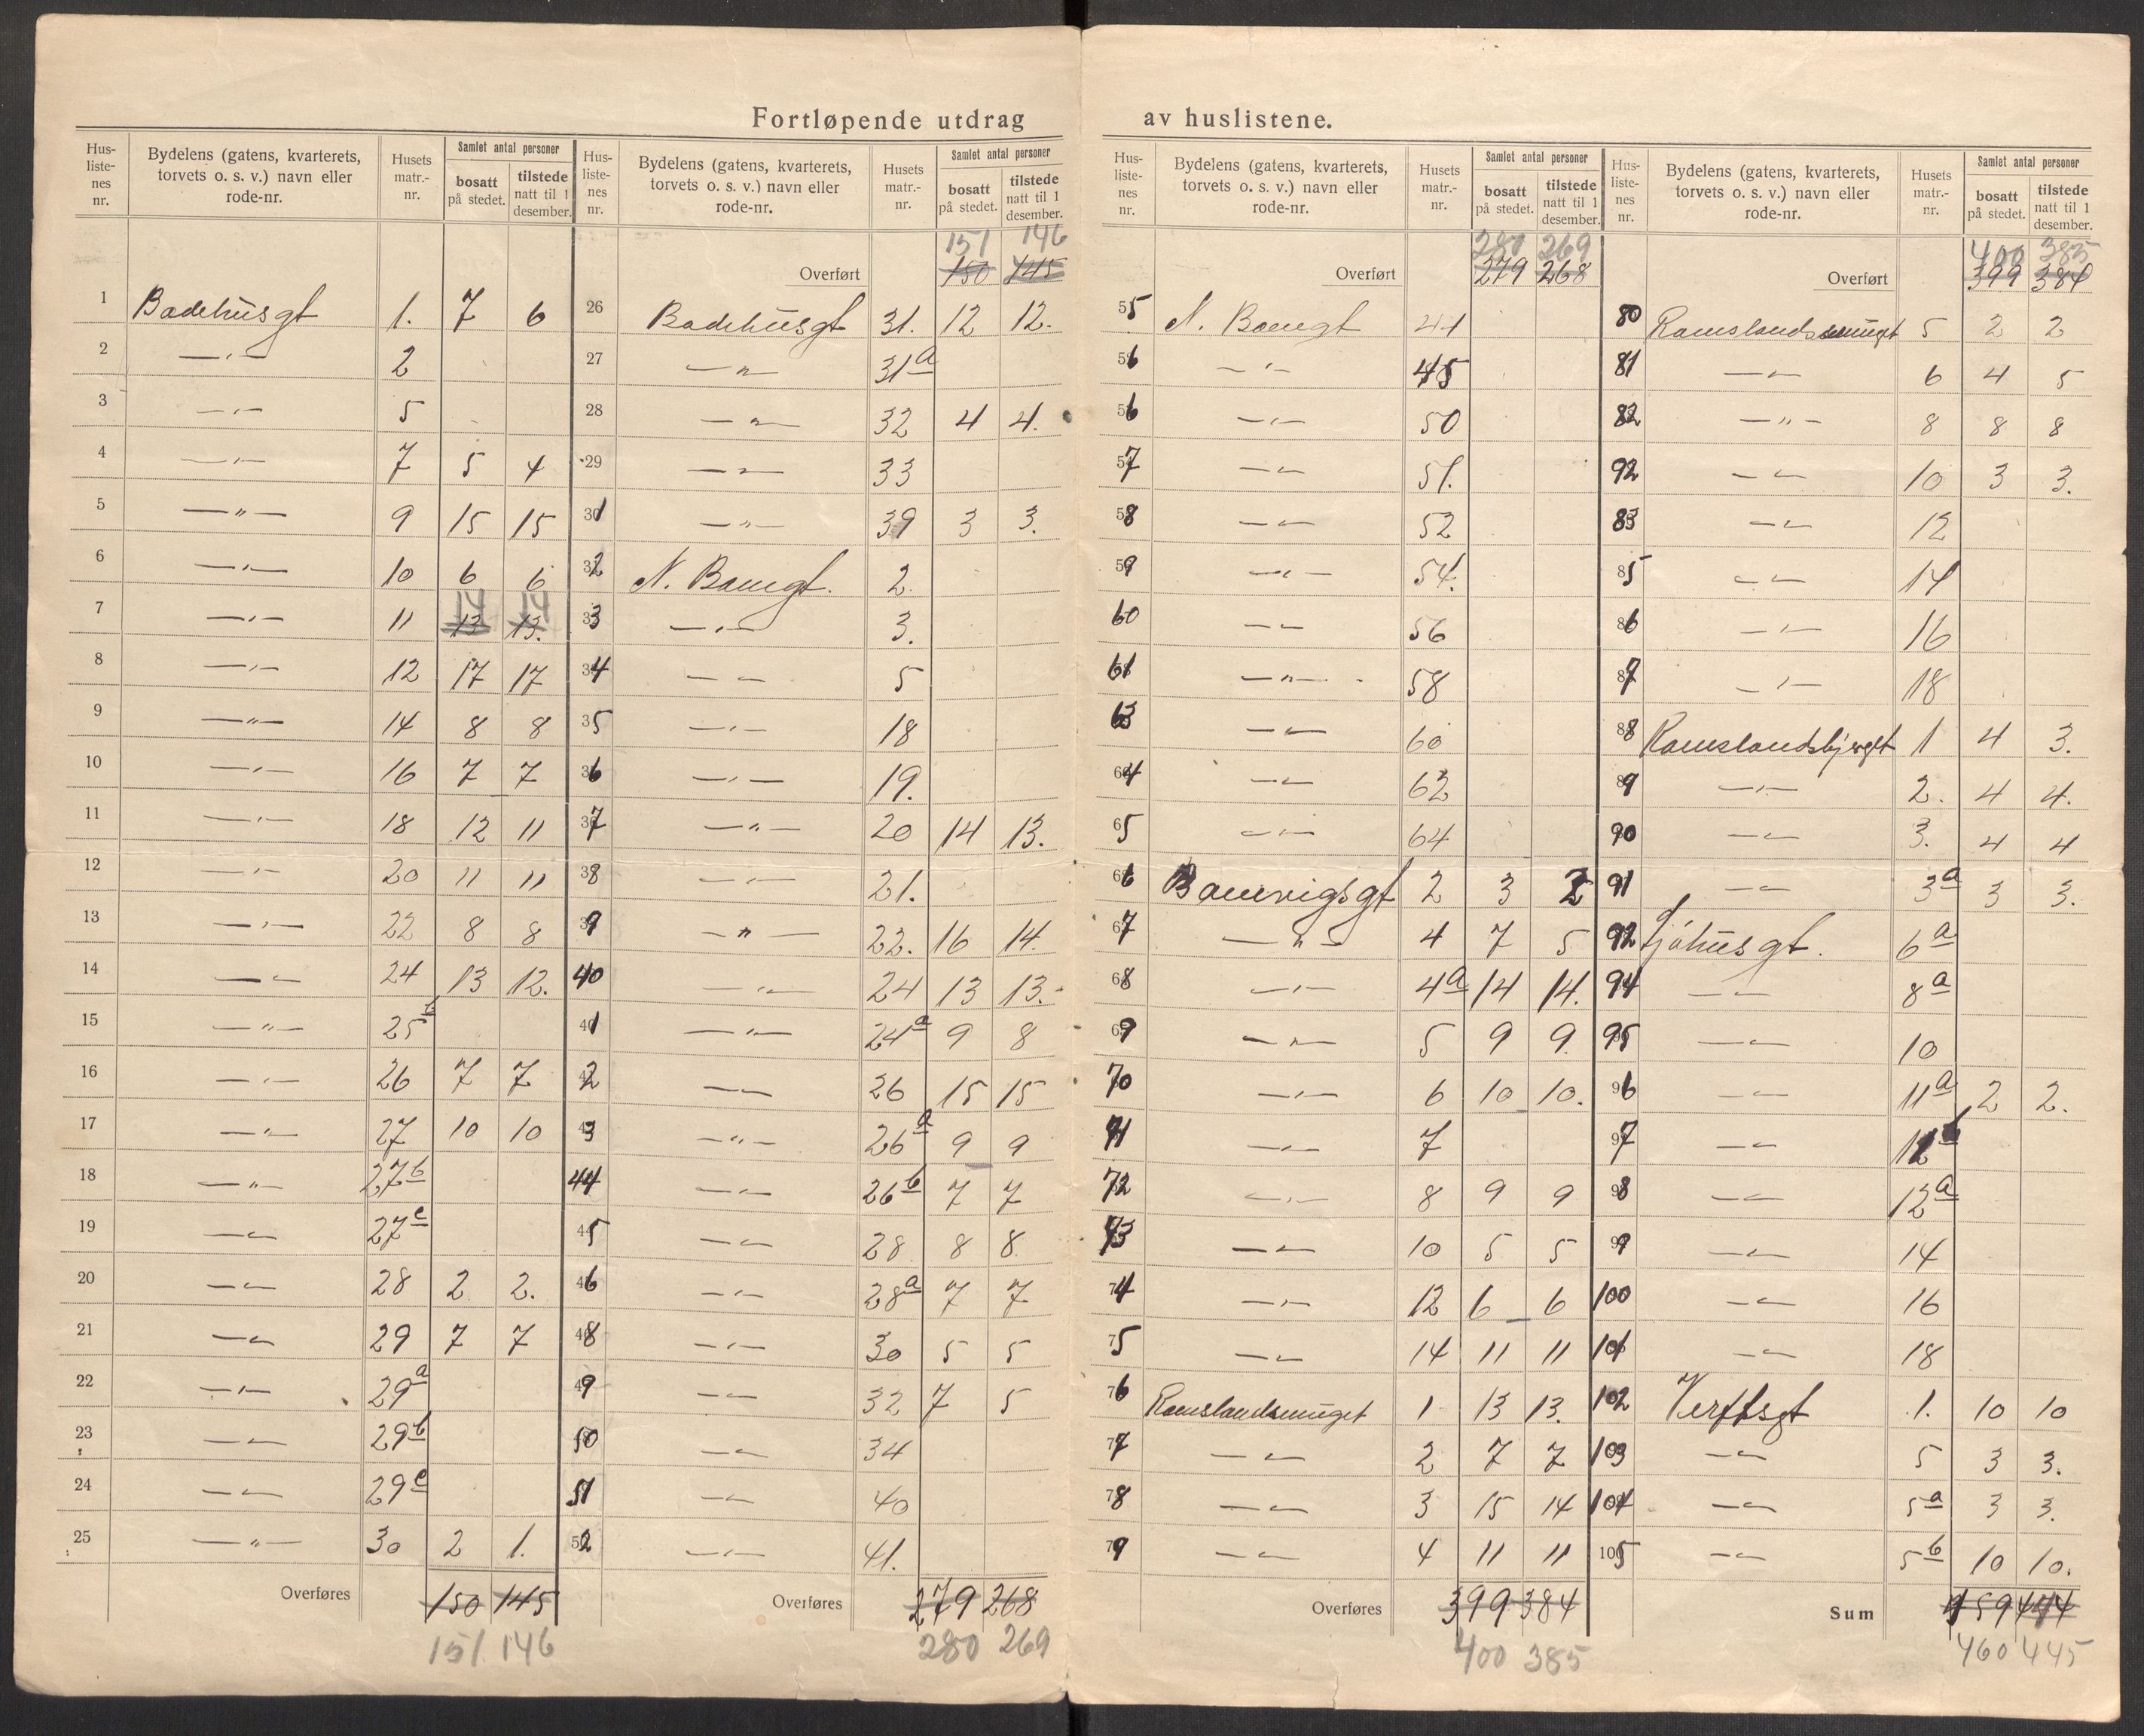 Fortløpende utdrag av huslistene.
Hus-liste-nes nr. | Bydelens (gatens, kvarterets, torvets o. s. v.) navn eller rode-nr. | Husets matr.-nr. | Samlet antal personer: bosatt på stedet. | tilstede natt til 1 desember.
1 Badehusgt 1. 7 6
2 —"— 2
3 —"— 5
4 —"— 7 5 4
5 —"— 9 15 15
6 —"— 10 6 6
7 —"— 11 13 13. 14 14
8 —"— 12 17 17
9 —"— 14 8 8
10 —"— 16 7 7
11 —"— 18 12 11
12 —"— 20 11 11
13 —"— 22 8 8
14 —"— 24 13 12.
15 —"— 25b
16 —"— 26 7 7
17 —"— 27 10 10
18 —"— 27b
19 —"— 27c
20 —"— 28 2 2.
21 —"— 29 7 7
22 —"— 29a
23 —"— 29b
24 —"— 29c
25 —"— 30 2 1.
Overføres 150 145
151 146
Hus-liste-nes nr. | Bydelens (gatens, kvarterets, torvets o. s. v.) navn eller rode-nr. | Husets matr.-nr. | Samlet antal personer: bosatt på stedet. | tilstede natt til 1 desember.
151 146
Overført 150 145
26 Badehusgt 31. 12 12.
27 —"— 31a
28 —"— 32 4 4.
29 —"— 33
31 —"— 39 3 3.
32 N. Banegt. 2.
33 —"— 3.
34 —"— 5
35 —"— 18
36 —"— 19.
37 —"— 20 14 13.
38 —"— 21.
39 —"— 22. 16 14.
40 —"— 24 13 13.
41 —"— 24a 9 8
42 —"— 26 15 15
43 —"— 26a 9 9
44 —"— 26b 7 7
45 —"— 28 8 8
46 —"— 28a 7 7
48 —"— 30 5 5
49 —"— 32 7 5
50 —"— 34
51 —"— 40
52 —"— 41.
Overføres 279 268
280 269
Hus-liste-nes nr. | Bydelens (gatens, kvarterets, torvets o. s. v.) navn eller rode-nr. | Husets matr.-nr. | Samlet antal personer: bosatt på stedet. | tilstede natt til 1 desember.
280 269
Overført 279 268
55 N. Banegt 44
56 —"— 45
56 —"— 50
57 —"— 51.
58 —"— 52
59 —"— 54.
60 —"— 56
61 —"— 58
63 —"— 60
64 —"— 62
65 —"— 64
66 Banevigsgt 2 3 2
67 —"— 4 7 5
68 —"— 4a 14 14.
69 —"— 5 9 9.
70 —"— 6 10 10.
71 —"— 7
72 —"— 8 9 9
73 —"— 10 5 5
74 —"— 12 6 6
75 —"— 14 11 11
76 Ramslandsmuget 1 13 13.
77 —"— 2 7 7
78 —"— 3 15 14
79 —"— 4 11 11
Overføres 399 384
400 385
Hus-liste-nes nr. | Bydelens (gatens, kvarterets, torvets o. s. v.) navn eller rode-nr. | Husets matr.-nr. | Samlet antal personer: bosatt på stedet. | tilstede natt til 1 desember.
400 385
Overført 399 384
80 Ramslandsmuget 5 2 2
81 —"— 6 4 5
82 —"— 8 8 8
92 —"— 10 3 3.
83 —"— 12
85 —"— 14
86 —"— 16
87 —"— 18
88 Ramslandsbjerget 1 4 3.
89 —"— 2. 4 4.
90 —"— 3. 4 4
91 —"— 3a 3 3.
92 Sjøhusgt. 6a
94 —"— 8a
95 —"— 10
96 —"— 11a 2 2.
97 —"— 12
98 —"— 12a
99 —"— 14
100 —"— 16
101 —"— 18
102 Verftsgt 1. 10 10
103 —"— 5 3 3.
104 —"— 5a 3 3.
105 —"— 5b 10 10.
Sum 459 444
460 445